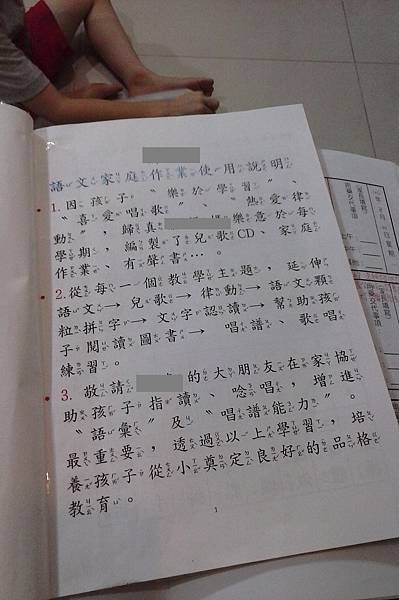 語文家庭作業使用說明
1.因孩子〝樂於學習〞、
〝喜愛唱歌〞、〝熱愛律
動〞，歸真 樂意於每
學期，編製了兒歌CD、家庭
作業、有聲書…。
2.從每一個教學主題，延伸
語文→兒歌→律動→語文顆
粒拼字→文字認讀→幫助孩
子閱讀圖書→唱譜、歌唱
練習。
3.敬請 的大朋友在家協
助孩子指讀、唸唱，增進
〝語彙〞及〝唱譜能力〞。
最重要，透過以上學習，培
養孩子從小奠定良好的品格
教育。
1